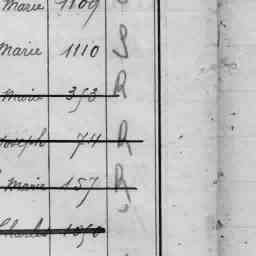 Marie 1109 S
Marie 1110 S
Marie 353 R
Joseph 711 R
Marie 157 R
Charles